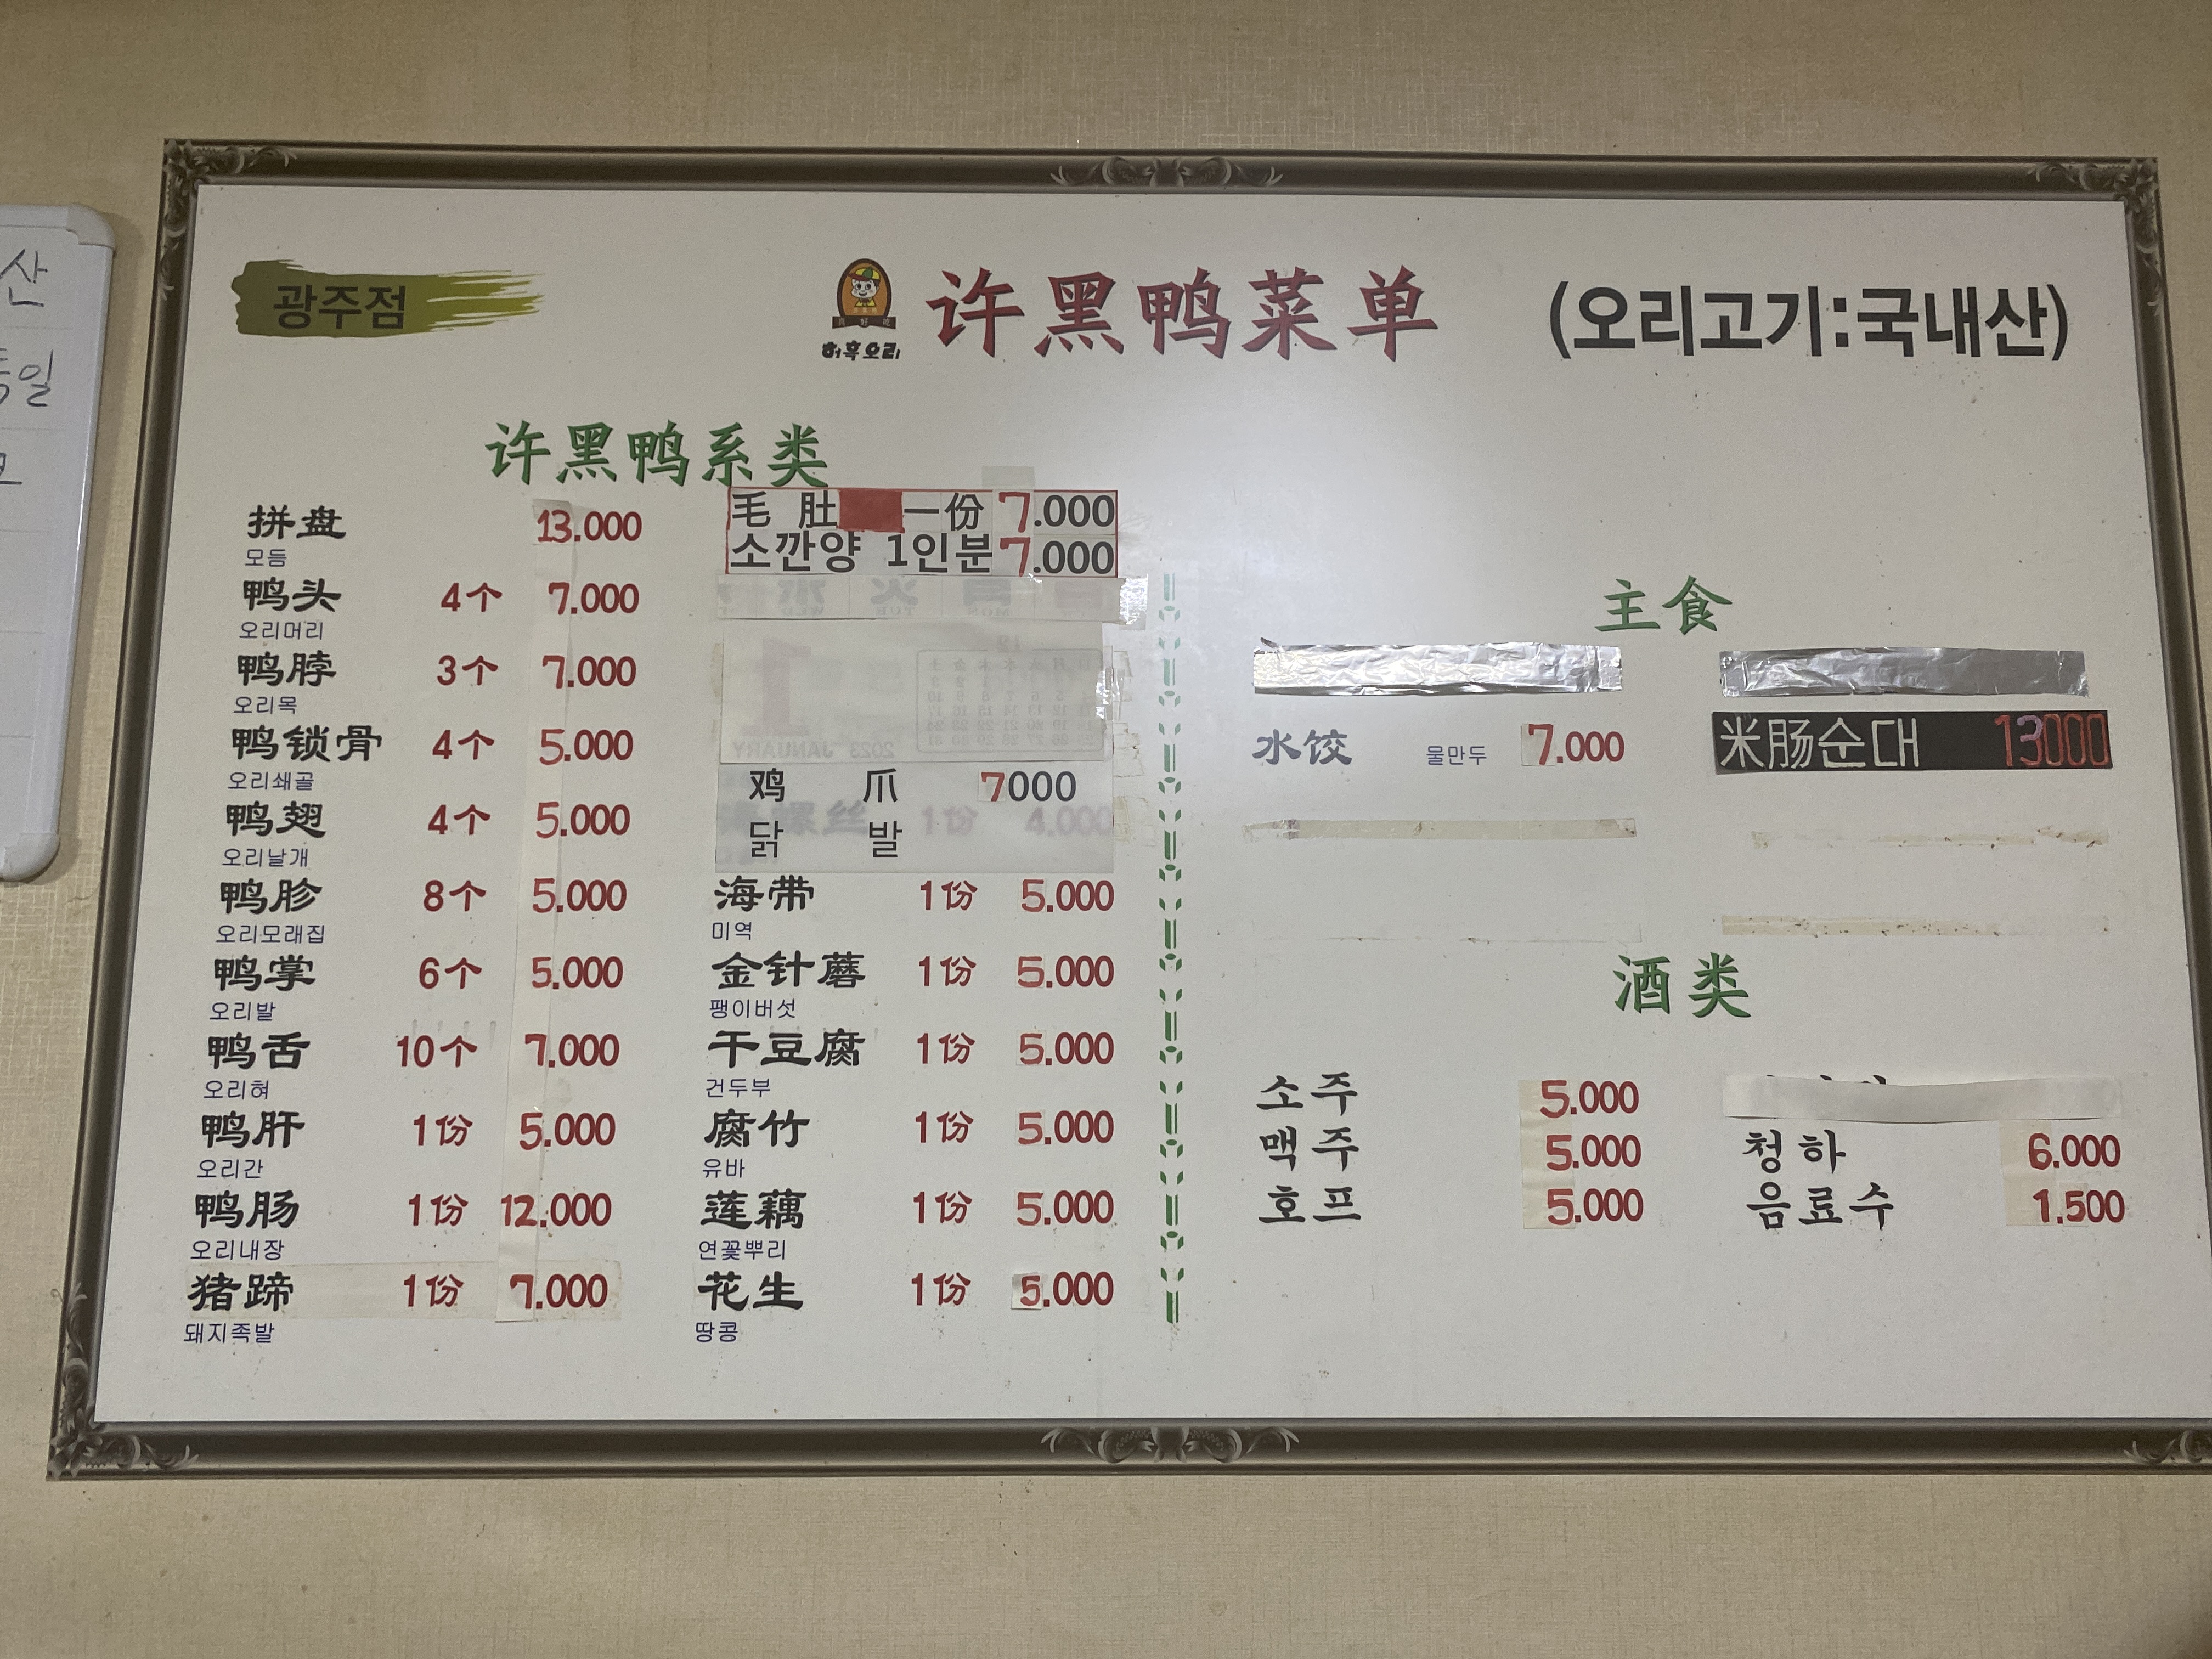 광주점
허흑오리
许黑鸭菜单
(오리고기:국내산)
许黑鸭系类
拼盘 13.000
모듬
鸭头 4个 7.000
오리머리
鸭脖 3个 7.000
오리목
鸭锁骨 4个 5.000
오리쇄골
鸭翅 4个 5.000
오리날개
鸭胗 8个 5.000
오리모래집
鸭掌 6个 5.000
오리발
鸭舌 10个 7.000
오리혀
鸭肝 1份 5.000
오리간
鸭肠 1份 12.000
오리내장
猪蹄 1份 7.000
돼지족발
毛肚 一份 7.000
소깐양 1인분 7.000
鸡爪 7000
닭발
海带 1份 5.000
미역
金针蘑 1份 5.000
팽이버섯
干豆腐 1份 5.000
건두부
腐竹 1份 5.000
유바
莲藕 1份 5.000
연꽃뿌리
花生 1份 5.000
땅콩
主食
水饺 물만두 7.000
米肠순대 13000
酒类
소주 5.000
맥주 5.000
호프 5.000
청하 6.000
음료수 1.500
산
일